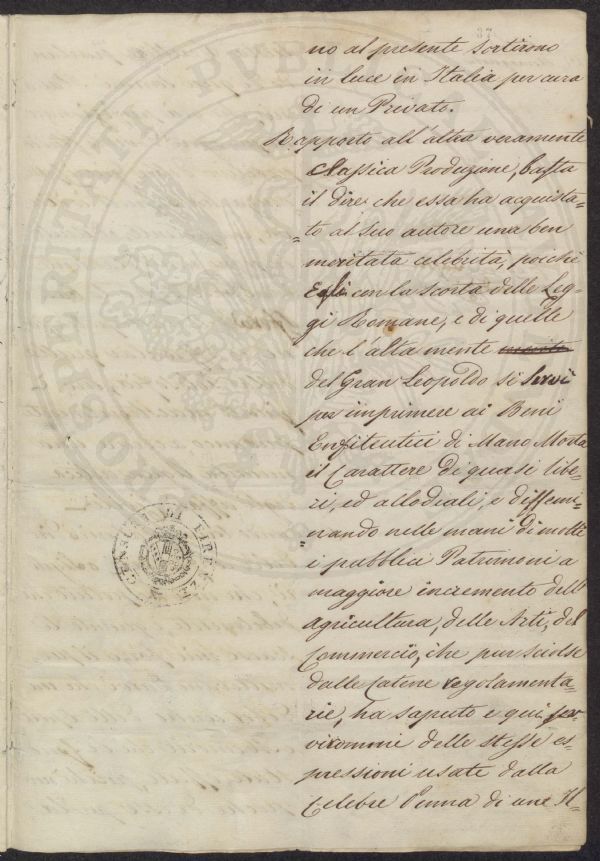 87
no al presente sortirono
in luce in Italia per cura
di un Privato.
Rapporto all'altra veramente
classica Produzione, basta
il dire che essa ha acquista=
=to al suo autore una ben
meritata celebrità, poichè
Egli con la scorta delle Leg=
gi Romane, e di quelle
che l'alta mente
del Gran Leopoldo si servì
per imprimere ai Beni
Enfiteutici di Mano Morta
il Carattere di quasi libe=
ri, ed allodiali, e dissemi=
=nando nelle mani di molti
i pubblici Patrimoni a
maggiore incremento dell'
agricultura, delle Arti, del
Commercio, che pur sciolse
dalle catene regolamenta=
rie, ha saputo e qui ser=
virommi delle stesse es=
pressioni usate dalla
Celebre Penna di une Il=
CENSURA DI FIRENZE